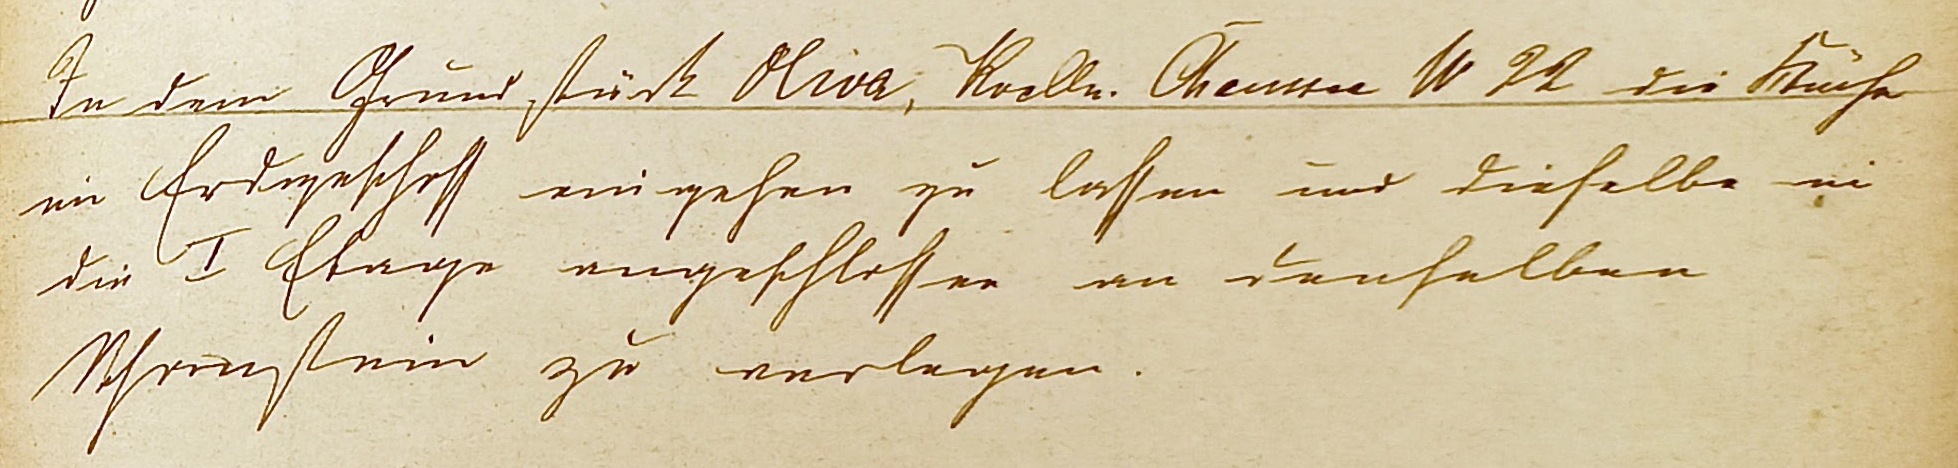 In dem Grundstück Oliva, Koelln. Chaussee N 22 die Küche
im Erdgeschoss eingehen zu lassen und dieselbe in
die I Etage angeschlossen an denselben
Schornstein zu verlegen.